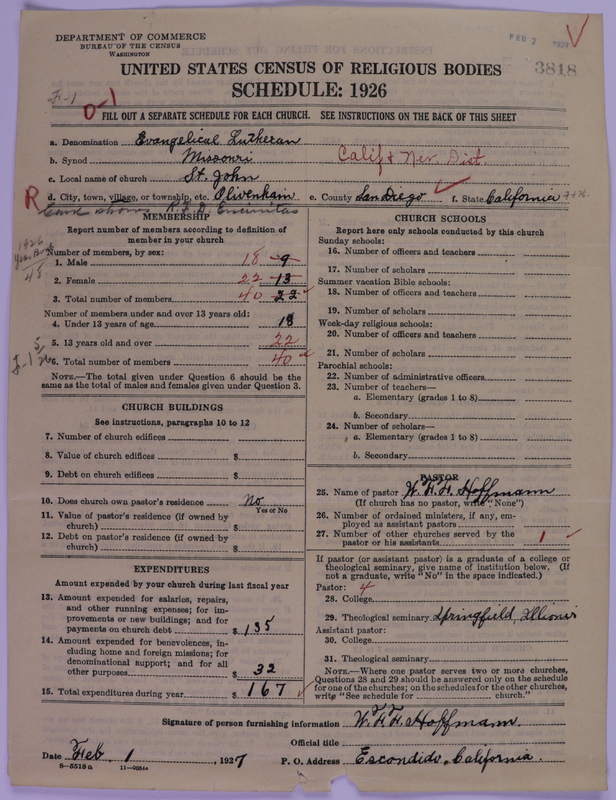 DEPARTMENT OF COMMERCE
BUREAU OF THE CENSUS
WASHINGTON
FEB 7 1927
3818
UNITED STATES CENSUS OF RELIGIOUS BODIES
SCHEDULE: 1926
F-1
0-1
FILL OUT A SEPARATE SCHEDULE FOR EACH CHURCH. SEE INSTRUCTIONS ON THE BACK OF THIS SHEET
a. Denomination Evangelical Lutheran
b. Synod Missouri Calif & Nev. Dist.
c. Local name of church St. John
R d. City, town, village, or township, etc. Olivenhain e. County San Diego f. State California
R.F.D. Encinitas
MEMBERSHIP
Report number of members according to definition of
member in your church
1926
48
Number of members, by sex:
1. Male 18 9
2. Female 22 13
3. Total number of members 40 22
Number of members under and over 13 years old:
4. Under 13 years of age 18
5. 13 years old and over 22
6. Total number of members 40
NOTE.—The total given under Question 6 should be the
same as the total of males and females given under Question 3.
CHURCH BUILDINGS
See instructions, paragraphs 10 to 12
7. Number of church edifices
8. Value of church edifices $
9. Debt on church edifices $
10. Does church own pastor's residence No
Yes or No
11. Value of pastor's residence (if owned by
church) $
12. Debt on pastor's residence (if owned by
church) $
EXPENDITURES
Amount expended by your church during last fiscal year
13. Amount expended for salaries, repairs,
and other running expenses; for im-
provements or new buildings; and for
payments on church debt $ 135
14. Amount expended for benevolences, in-
cluding home and foreign missions; for
denominational support; and for all
other purposes $ 32
15. Total expenditures during year $ 167
CHURCH SCHOOLS
Report here only schools conducted by this church
Sunday schools:
16. Number of officers and teachers
17. Number of scholars
Summer vacation Bible schools:
18. Number of officers and teachers
19. Number of scholars
Week-day religious schools:
20. Number of officers and teachers
21. Number of scholars
Parochial schools:
22. Number of administrative officers
23. Number of teachers—
a. Elementary (grades 1 to 8)
b. Secondary
24. Number of scholars—
a. Elementary (grades 1 to 8)
b. Secondary
PASTOR
25. Name of pastor W. F. F. Hoffmann
(If church has no pastor, write "None")
26. Number of ordained ministers, if any, em-
ployed as assistant pastors
27. Number of other churches served by the
pastor or his assistants 1
If pastor (or assistant pastor) is a graduate of a college or
theological seminary, give name of institution below. (If
not a graduate, write "No" in the space indicated.)
Pastor: 4
28. College
29. Theological seminary Springfield, Illinois
Assistant pastor:
30. College
31. Theological seminary
NOTE.—Where one pastor serves two or more churches,
Questions 28 and 29 should be answered only on the schedule
for one of the churches; on the schedules for the other churches,
write "See schedule for church."
Signature of person furnishing information W. F. F. Hoffmann.
Official title
Date Feb. 1, 1927 P. O. Address Escondido, California.
8—5518a 11—9664a